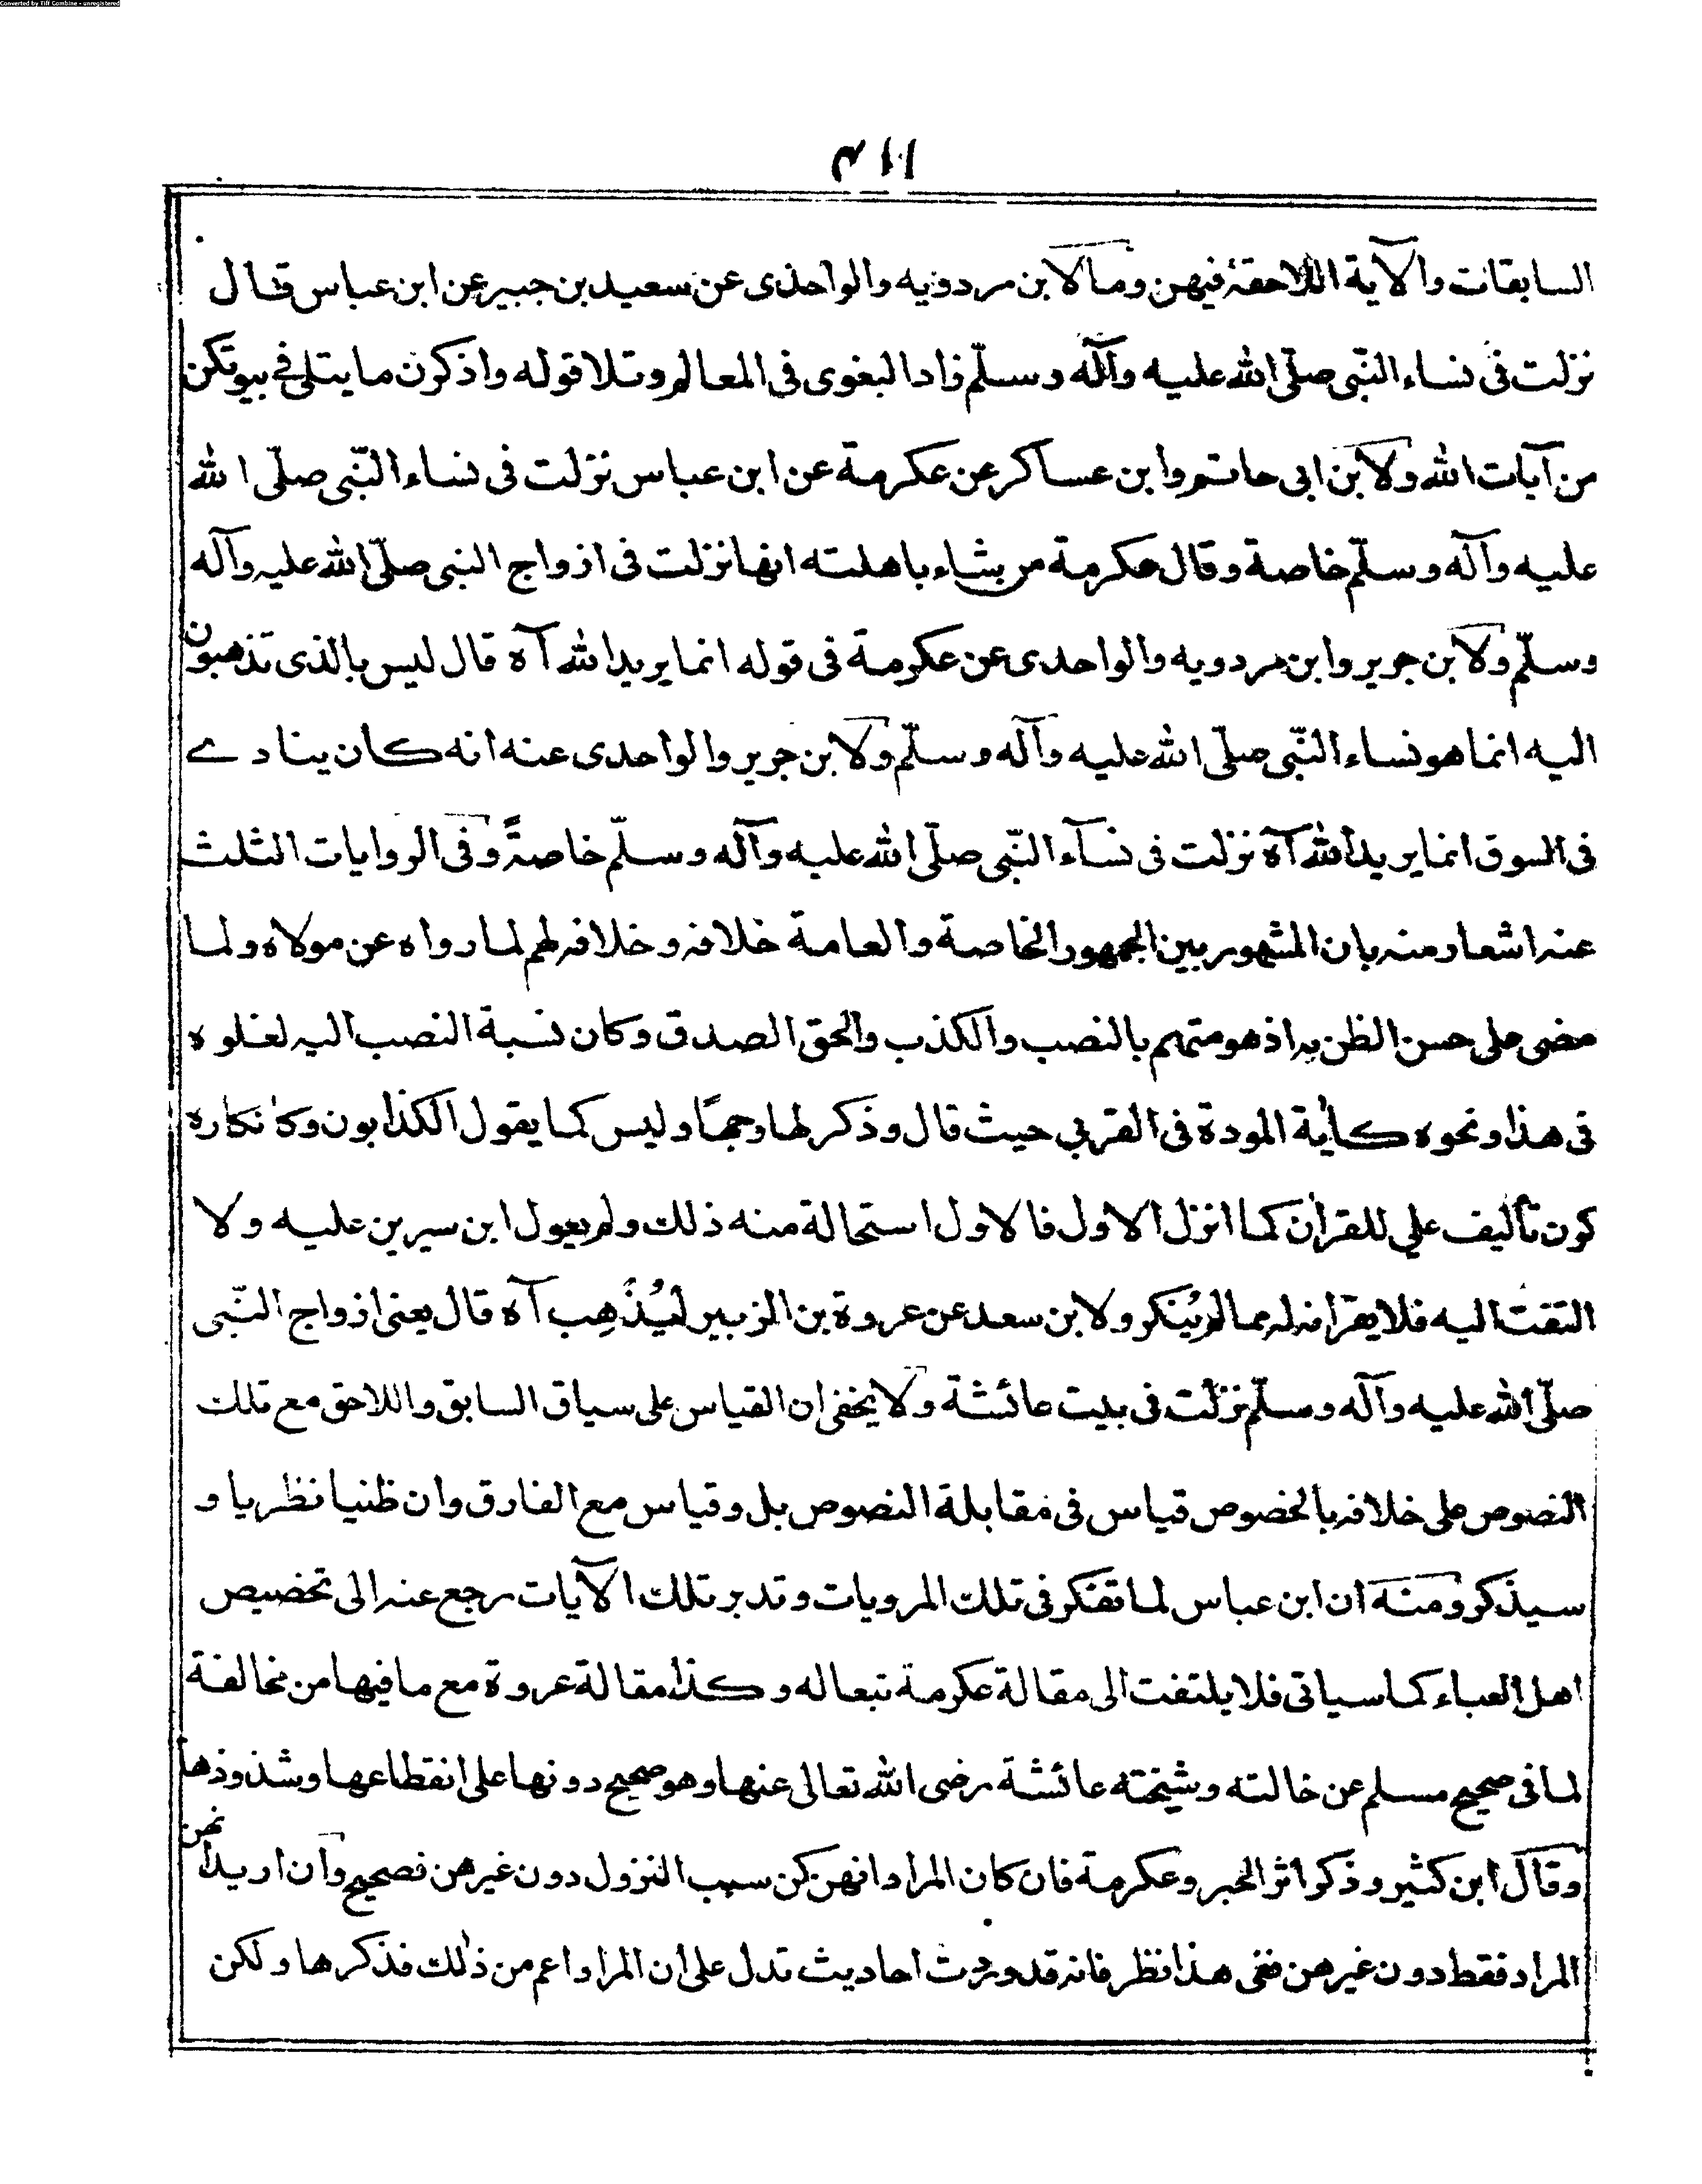 Converted by Tiff Combine - unregistered
السابقات والآية اللاحقة فيهن وما لابن مردويه والواحدى عن سعيد بن جبير عن ابن عباس قال
نزلت فى نساء النّبى صلّى الله عليه وآله وسلّم زاد البغوى فى المعالم وتلا قوله واذكرن ما يتلى فے بيوتكن
من آيات الله ولابن ابى حاتم وابن عساكر عن عكرمة عن ابن عباس نزلت فى نساء النّبى صلّى الله
عليه وآله وسلّم خاصة وقال عكرمة من يشاء باهلته انها نزلت فى ازواج النبى صلّى الله عليه وآله
وسلّم ولابن جرير وابن مردويه والواحدى عن عكرمة فى قوله انما يريد الله آه قال ليس بالذى تذهبون
اليه انما هو نساء النّبى صلّى الله عليه وآله وسلّم ولابن جرير والواحدى عنه انه كان ينادے
فى السوق انما يريد الله آه نزلت فى نسآء النّبى صلّى الله عليه وآله وسلّم خاصةً وفى الروايات الثلث
عنه اشعار منه بان المشهور بين الجمهور الخاصة والعامة خلافه وخلافه لهم لما رواه عن مولاه ولما
مضى على حسن الظن به اذ هو متهم بالنصب والكذب والحق الصدق وكان نسبة النصب اليه لغلوه
فى هذا ونحوه كآية المودة فى القربي حيث قال وذكر لها وجهًا وليس كما يقول الكذابون وكانكاره
كون تأليف علي للقرآن كما انزل الاول فالاول استحالة منه ذلك ولم يعول ابن سيرين عليه ولا
التفت اليه فلا يقرا منه له مما لم يُنكر ولابن سعد عن عروة بن الزبير ليُذْهِب آه قال يعنى ازواج النّبى
صلّى الله عليه وآله وسلّم نزلت فى بيت عائشة ولا يخفى ان القياس على سياق السابق واللاحق مع تلك
النصوص على خلافه بالخصوص قياس فى مقابلة النصوص بل وقياس مع الفارق وان ظنيا نظريا و
سيذكر ومنه ان ابن عباس لما تفكر فى تلك المرويات وتدبر تلك الآيات رجع عنه الى تخصيص
اهل العباء كما سياتى فلا يلتفت الى مقالة عكرمة تبعا له وكذا مقالة عروة مع ما فيها من مخالفة
لما فى صحيح مسلم عن خالته وشيخته عائشة رضى الله تعالى عنها وهو صحيح دونها على انقطاعها وشذوذها
وقال ابن كثير وذكر اثر الحبر وعكرمة فان كان المراد انهن كن سبب النزول دون غيرهن فصحيح وان اريد انهن
المراد فقط دون غيرهن ففى هذا نظر فانه قد وردت احاديث تدل على ان المراد اعم من ذٰلك فذكرها ولكن